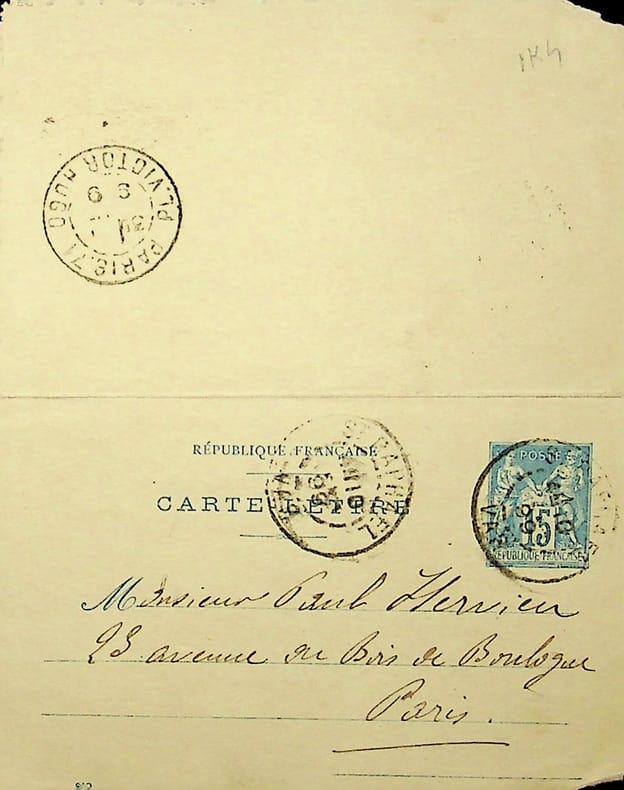 PARIS.71
PL.VICTOR HUGO
9 9
RÉPUBLIQUE FRANÇAISE
CARTE-LETTRE
RAPHAEL
POSTES
15
RÉPUBLIQUE FRANÇAISE
VAR
Monsieur Paul Hervieu
23 avenue du Bois de Boulogne
Paris.
802